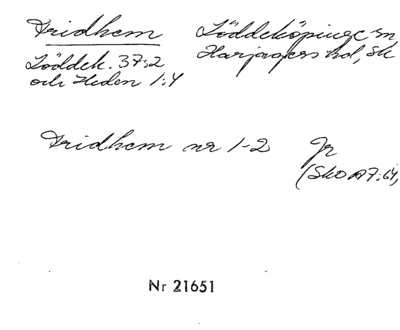 Fridhem
Löddek. 37:2
och Heden 1:4
Löddeköpinge sn
Harjagers hd, Sk
Fridhem nr 1-2 Jr
(SkO A7:64)
Nr 21651